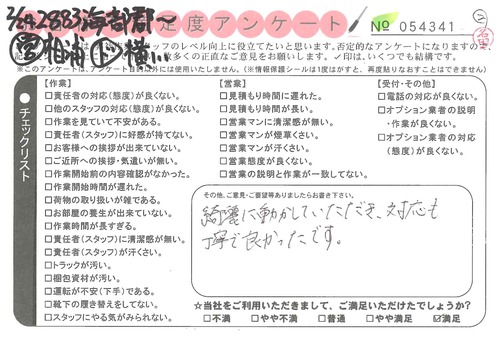 2/24 2883 海部郡～
営 雅浦 ト 横…
度アンケート
№ 054341
名古
スタッフのレベル向上に役立てたいと思います。否定的なアンケートになりますの
数多くの正直なご意見をお願いします。✓印は、いくつでも結構です。
※このアンケートは、アンケート目的以外には使用いたしません。(※情報保護シールは1度はがすと、再度貼りなおすことはできません)
チェックリスト
【作業】
□責任者の対応(態度)が良くない。
□他のスタッフの対応(態度)が良くない。
□作業を見ていて不安がある。
□責任者(スタッフ)に好感が持てない。
□お客様への挨拶が出来ていない。
□ご近所への挨拶・気遣いが無い。
□作業開始前の内容確認がなかった。
□作業開始時間が遅れた。
□荷物の取り扱いが雑である。
□お部屋の養生が出来ていない。
□作業時間が長すぎる。
□責任者(スタッフ)に清潔感が無い。
□責任者(スタッフ)が汗くさい。
□トラックが汚い。
□梱包資材が汚い。
□運転が不安(下手)である。
□靴下の履き替えをしてない。
□スタッフにやる気がみられない。
【営業】
□見積もり時間に遅れた。
□見積もり時間が長い。
□営業マンに清潔感が無い。
□営業マンが煙草くさい。
□営業マンが汗くさい。
□営業態度が良くない。
□営業の説明と作業が一致してない。
【受付・その他】
□電話の対応が良くない。
□オプション業者の説明
・作業が良くない。
□オプション業者の対応
(態度)が良くない。
その他、ご意見・ご要望等ありましたらお書き下さい。
綺麗に動かしていただき、対応も
丁寧で良かったです。
☆当社をご利用いただきまして、ご満足いただけたでしょうか?
□不満 □やや不満 □普通 □やや満足 ☑満足